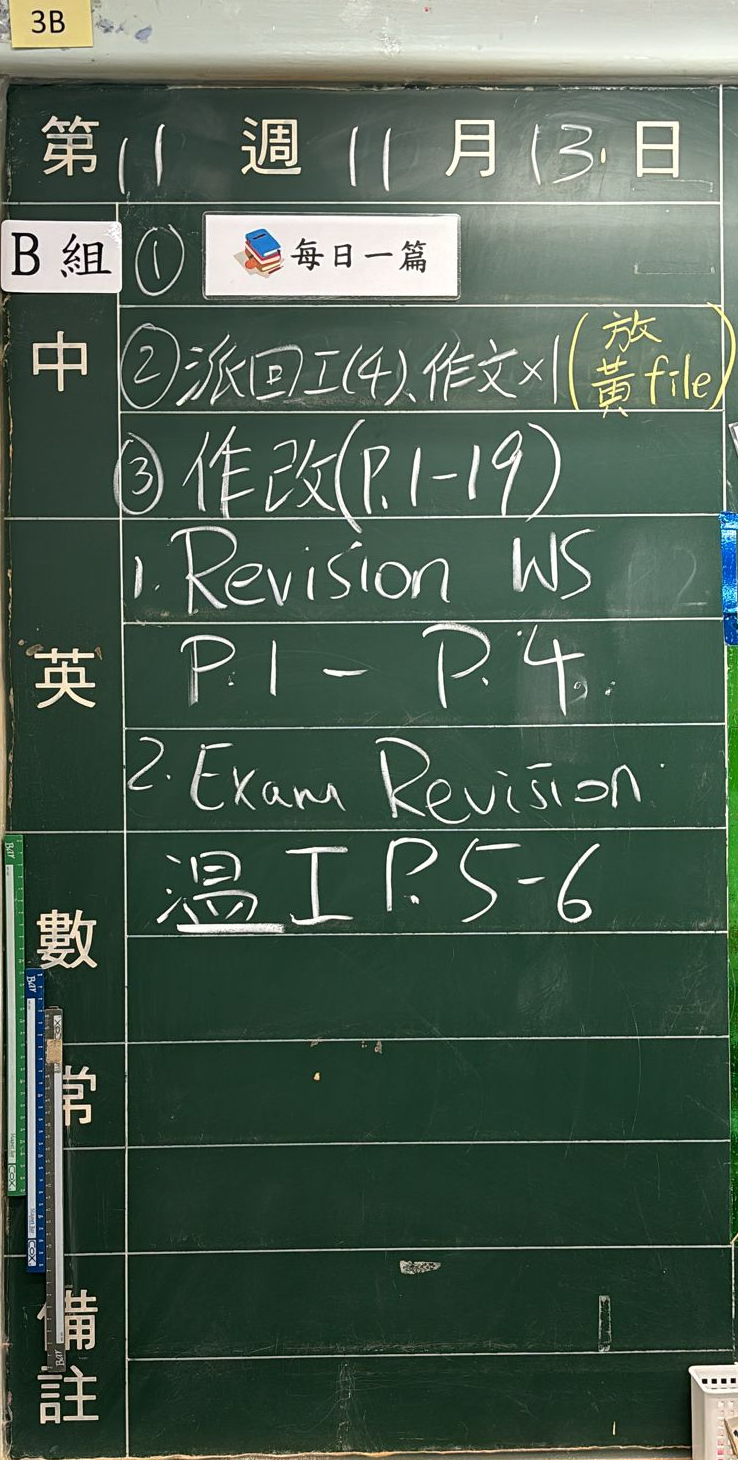 3B
第11週11月13日
B組
① 每日一篇
中
②派回工(4)、作文×1(放黃file)
③作改(P.1-19)
英
1. Revision WS
P.1 - P.4
2. Exam Revision
數
温工 P.5-6
常
備註